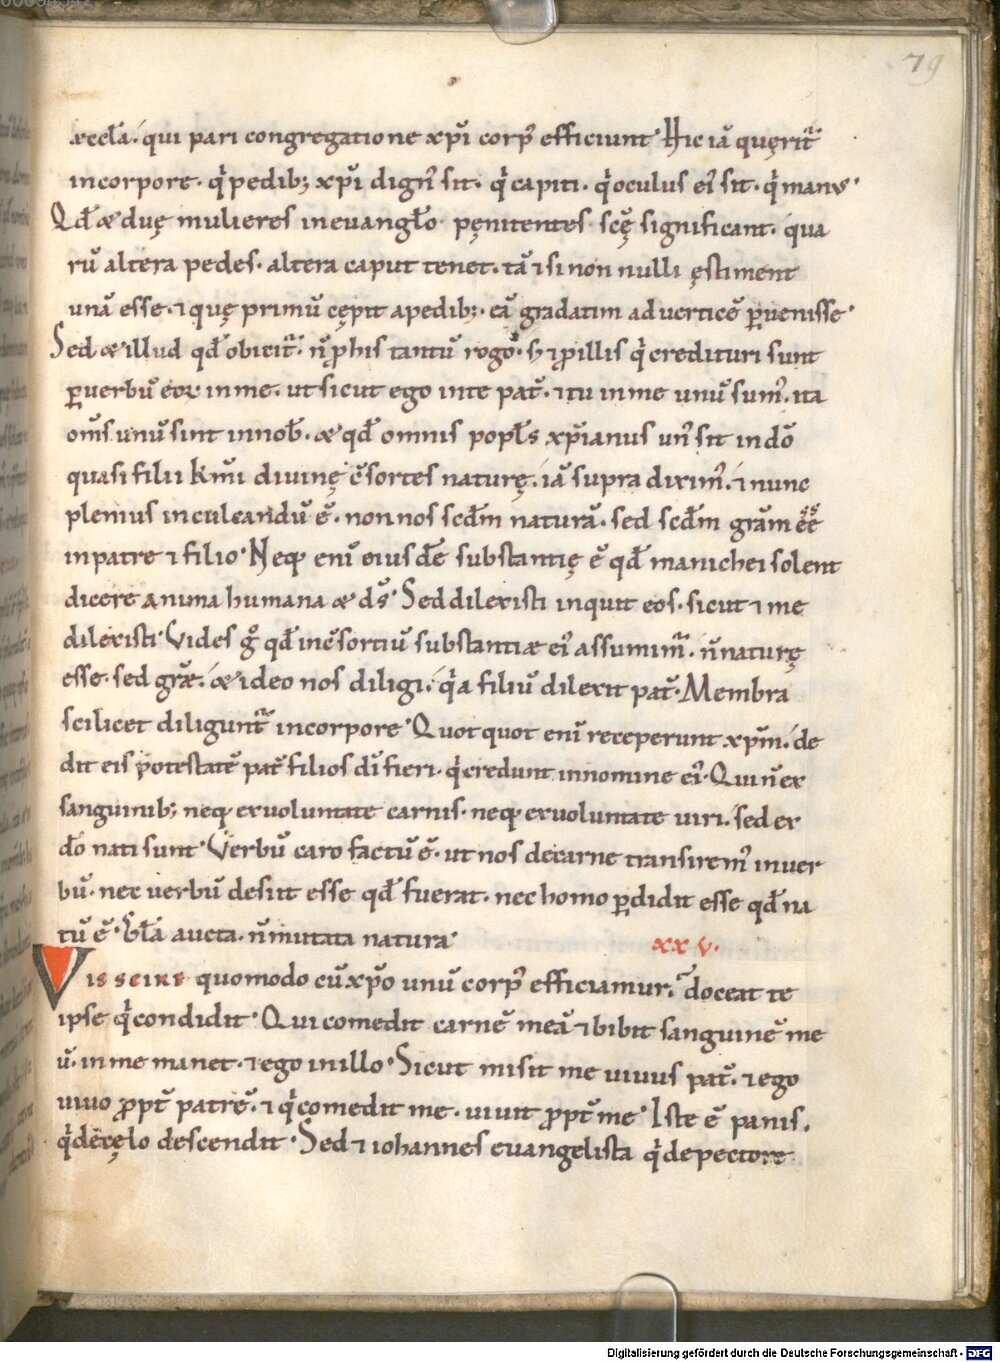 79
æccła. qui pari congregatione xp̄i corp᷒ efficiunt. Hic iā quęrit᷑
incorpore. q̍ pedib; xp̄i dign᷒ sit. q̍ capiti. q̍ oculus ei᷒ sit. q̍ man᷒.
Qd̄ æ duę mulieres in euangƚo pęnitentes scę̄ significant. qua
rū altera pedes. altera caput tenet. tā ⁊ si non nulli ęstiment
unā esse. ⁊ quę primū cępit apedib;. eā gradatim ad uerticē ꝑuenisse.
Sed æ illud qd̄ obicit᷑. n̄ ꝓ his tantū rogo. s; ⁊ ꝓ illis q̍ credituri sunt
ꝑ uerbū eoꝝ in me. ut sicut ego in te pat̄. ⁊ tu in me unū sum᷒. ita
om̄s unū sint in nob̄. æ qd̄ omnis popƚs xp̄ianus un᷒ sit in dō
quasi filii k̄mi diuinę c̄sortes naturę. iā supra dixim᷒. ⁊ nunc
plenius inculcandū ē. non nos scd̄m naturā. sed scd̄m grām ēē
in patre ⁊ filio. Neq; enī eiusdē substantię ē qd̄ manichei solent
dicere anima humana æ ds̄. Sed dilexisti inquit eos. sicut ⁊ me
dilexisti. Vides gͦ qd̄ in c̄sortiū substantiæ ei᷒ assumim᷑. n̄ naturę
esse. sed grǣ. æ ideo nos diligi. q̍a filiū dilexit pat̄. Membra
scilicet diligunt᷑ incorpore. Quotquot enī receperunt xp̄m. de
dit eis potestatē pat̄ filios dī fieri. q̍ credunt in nomine ei᷒. Qui n̄ ex
sanguinib; neq; ex uoluntate carnis. neq; ex uoluntate uiri. sed ex
dō nati sunt. Verbū caro factū ē. ut nos de carne transirem᷒ in uer
bū. nec uerbū desiit esse qd̄ fuerat. nec homo ꝑdidit esse qd̄ na
tū ē. Gƚa aucta. n̄ mutata natura. xxv.
Vis scire quomodo cū xp̄o unū corp᷒ efficiamur. doceat te
ipse q̍ condidit. Qui comedit carnē meā ⁊ bibit sanguinē me
ū. in me manet. ⁊ ego in illo. Sicut misit me uiuus pat̄. ⁊ ego
uiuo ꝓpt̄ patrē. ⁊ q̍ comedit me. uiuit ꝓpt̄ me. Iste ē panis.
q̍ de cęlo descendit. Sed ⁊ iohannes euangelista q̍ de pectore
Digitalisierung gefördert durch die Deutsche Forschungsgemeinschaft - DFG